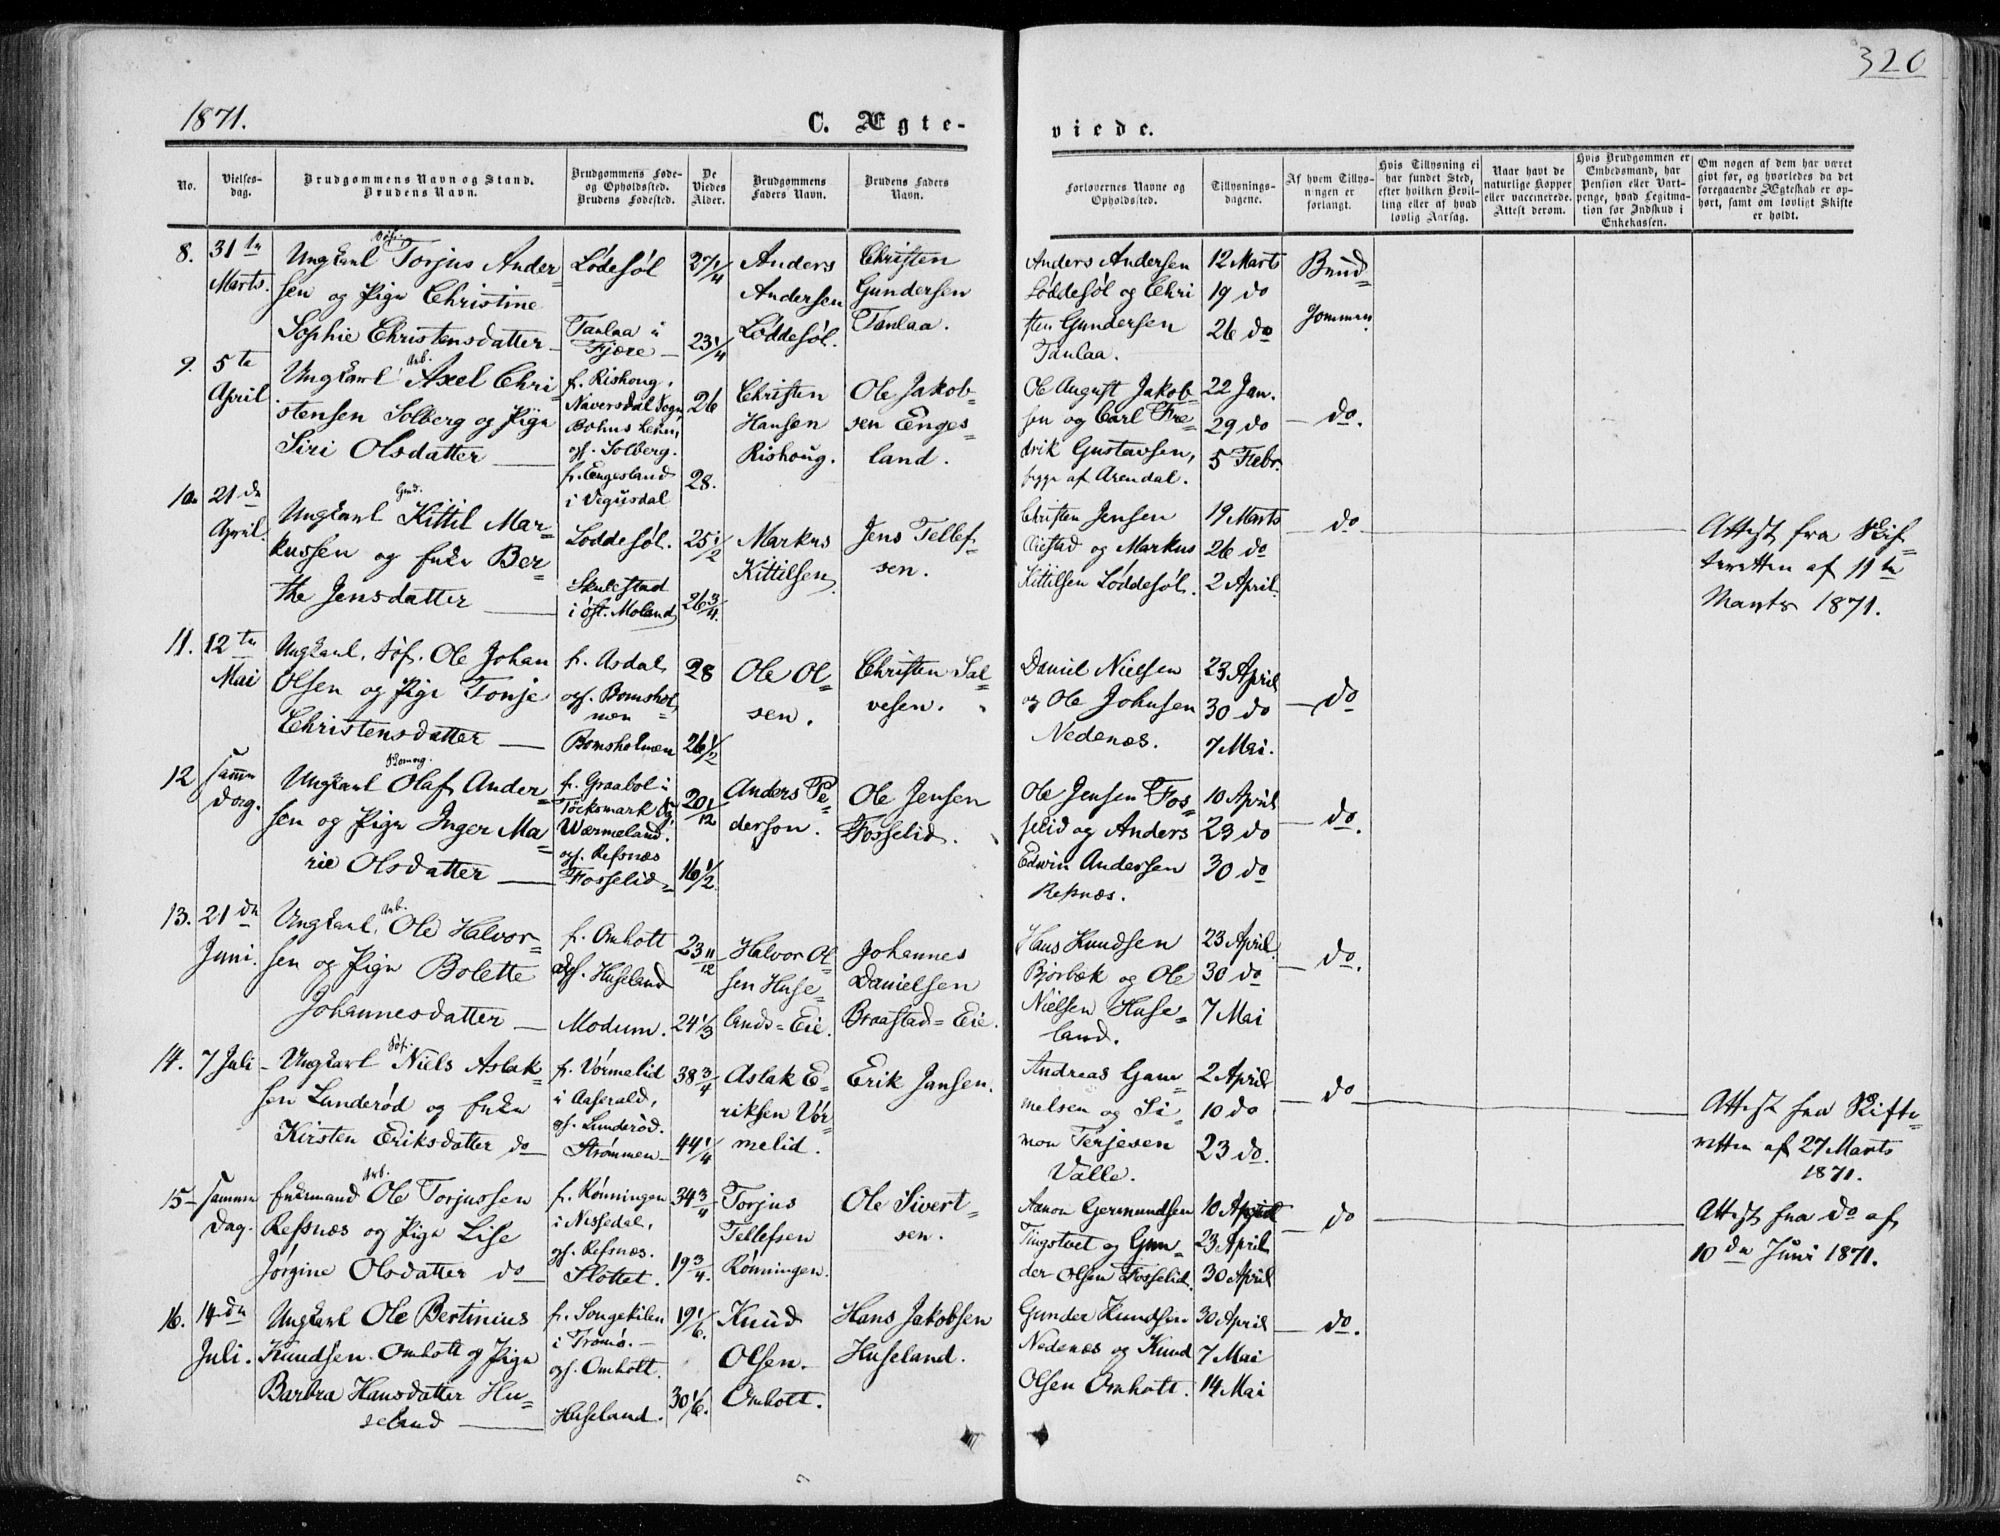 320
1871.
C. Ægte-
viede.
No.
Vielses-
dag.
Brudgommens Navn og Stand.
Brudens Navn.
Brudgommens Føde-
og Opholdssted.
Brudens Fødested.
De
Viedes
Alder.
Brudgommens
Faders Navn.
Brudens Faders
Navn.
Forlovernes Navne og
Opholdssted.
Tillysnings-
dagene.
Af hvem Tillys-
ningen er
forlangt.
Hvis Tillysning ei
har fundet Sted,
efter hvilken Bevil-
ling eller af hvad
lovlig Aarsag.
Naar havt de
naturlige Kopper
eller vaccinerede.
Attest derom.
Hvis Brudgommen er
Embedsmand, har
Pension eller Vart-
penge, hvad Legitma-
tion for Indskud i
Enkekassen.
Om nogen af dem har været
givt før, og hvorledes da det
foregaaende Ægteskab er op-
hørt, samt om lovligt Skifte
er holdt.
8.
31te
Marts.
Ungkarl Søf. Torjus Ander-
sen og Pige Christine
Sophie Christensdatter
Lødesøl
Tanlaa i
Fjære
27 1/4
23 1/4
Anders
Andersen
Løddesøl.
Christen
Gundersen
Tanlaa.
Anders Andersen
Løddesøl og Chri
sten Gundersen
Tanlaa.
12 Marts
19 do
26 do
Brud-
gommen
9.
5te
April
Ungkarl Arb. Axel Chri-
stensen Solberg og Pige
Siri Olsdatter
f. Rishoug,
Naversdal Sogn
Bohus Lehn,
opf. Solberg.
f. Engesland
i Vegusdal
26
28.
Christen
Hansen
Rishoug.
Ole Jakob-
sen Enges-
land.
Ole August Jakob-
sen og Carl Fre-
drik Gustavsen,
begge af Arendal.
22 Jan.
29 do
5 Febr.
do.
10.
21de
April.
Ungkarl Gmd. Kittil Mar-
kussen og Enke Ber-
the Jensdatter
Løddesøl.
Skulestad
i Øst. Moland
25 1/2
26 3/4
Markus
Kittilsen.
Jens Tellef-
sen.
Christen Jensen
og Markus
Kittilsen Løddesøl.
19 Marts
26 do
2 April.
do
Attest fra Skif-
teretten af 11te
Marts 1871.
11.
12te
Mai
Ungkarl. Søf. Ole Johan
Olsen og Pige Tonje
Christensdatter
f. Asdal
opf. Bomshol-
men
Bomsholmen
28
26 1/2
Ole Ol-
sen.
Christen Sal-
vesen.
Daniel Nielsen
og Ole Johnsen
Nedenæs.
23 April
30 do
7 Mai.
do
12
samme
Dag.
Ungkarl Olaf Ander-
sen og Pige Inger Ma-
rie Olsdatter
f. Graabol i
Töcksmark Sg.
Wærmeland.
opf. Refsnæs
Fosselid
20 1/12
16 1/2.
Anders Pe-
derson.
Ole Jensen
Fosselid.
Ole Jensen Fos-
selid og Anders
Edwin Andersen
Refsnæs.
10 April
23 do
30 do
do.
13.
21de
Juni.
Ungkarl. Arb. Ole Halvor-
sen og Pige Bolette
Johannesdatter
f. Omholt
opf. Huseland
Modum.
23 11/12
24 1/3
Halvor Ol-
sen Huse-
lands-Eie.
Johannes
Danielsen
Braastad-Eie.
Hans Knudsen
Bjorbæk og Ole
Nielsen Huse-
land.
23 April.
30 do
7 Mai
do.
14.
7 Juli
Ungkarl Søf. Niels Aslak-
sen Lunderød og Enke
Kirsten Eriksdatter do
f. Vörmelid
i Aaserald,
opf. Lunderöd.
Strømmen
38 3/4
44 1/4
Aslak E-
riksen Vör-
melid.
Erik Jansen.
Andreas Gam-
melsen og Si-
mon Terjesen
Valle.
2 April
10 do
23 do.
do
Attest fra Skifte-
retten af 27 Marts
1871.
15
samme
Dag.
Enkemand Arb. Ole Torjussen
Refsnæs og Pige Lise
Jørgine Olsdatter do
f. Rönningen
i Nissedal,
opf. Refsnæs.
Slottet.
34 3/4
19 3/4.
Torjus
Tellefsen
Rönningen.
Ole Sivert-
sen.
Aanon Germundsen
Tingstvet og Gun-
der Olsen Fosselid.
10 April
23 April
30 April
do
Attest fra do af
10de Juni 1871.
16.
14de
Juli.
Ungkarl Ole Bertinius
Knudsen Omholt og Pige
Barbra Hansdatter Hu-
seland
f. Songekilen
i Tromö.
opf. Omholt.
Huseland.
19 1/6.
30 1/6.
Knud
Olsen
Omholt.
Hans Jakobsen
Huseland.
Gunder Knudsen
Nedenæs og Knud
Olsen Omholt.
30 April
7 Mai
14 Mai
do.